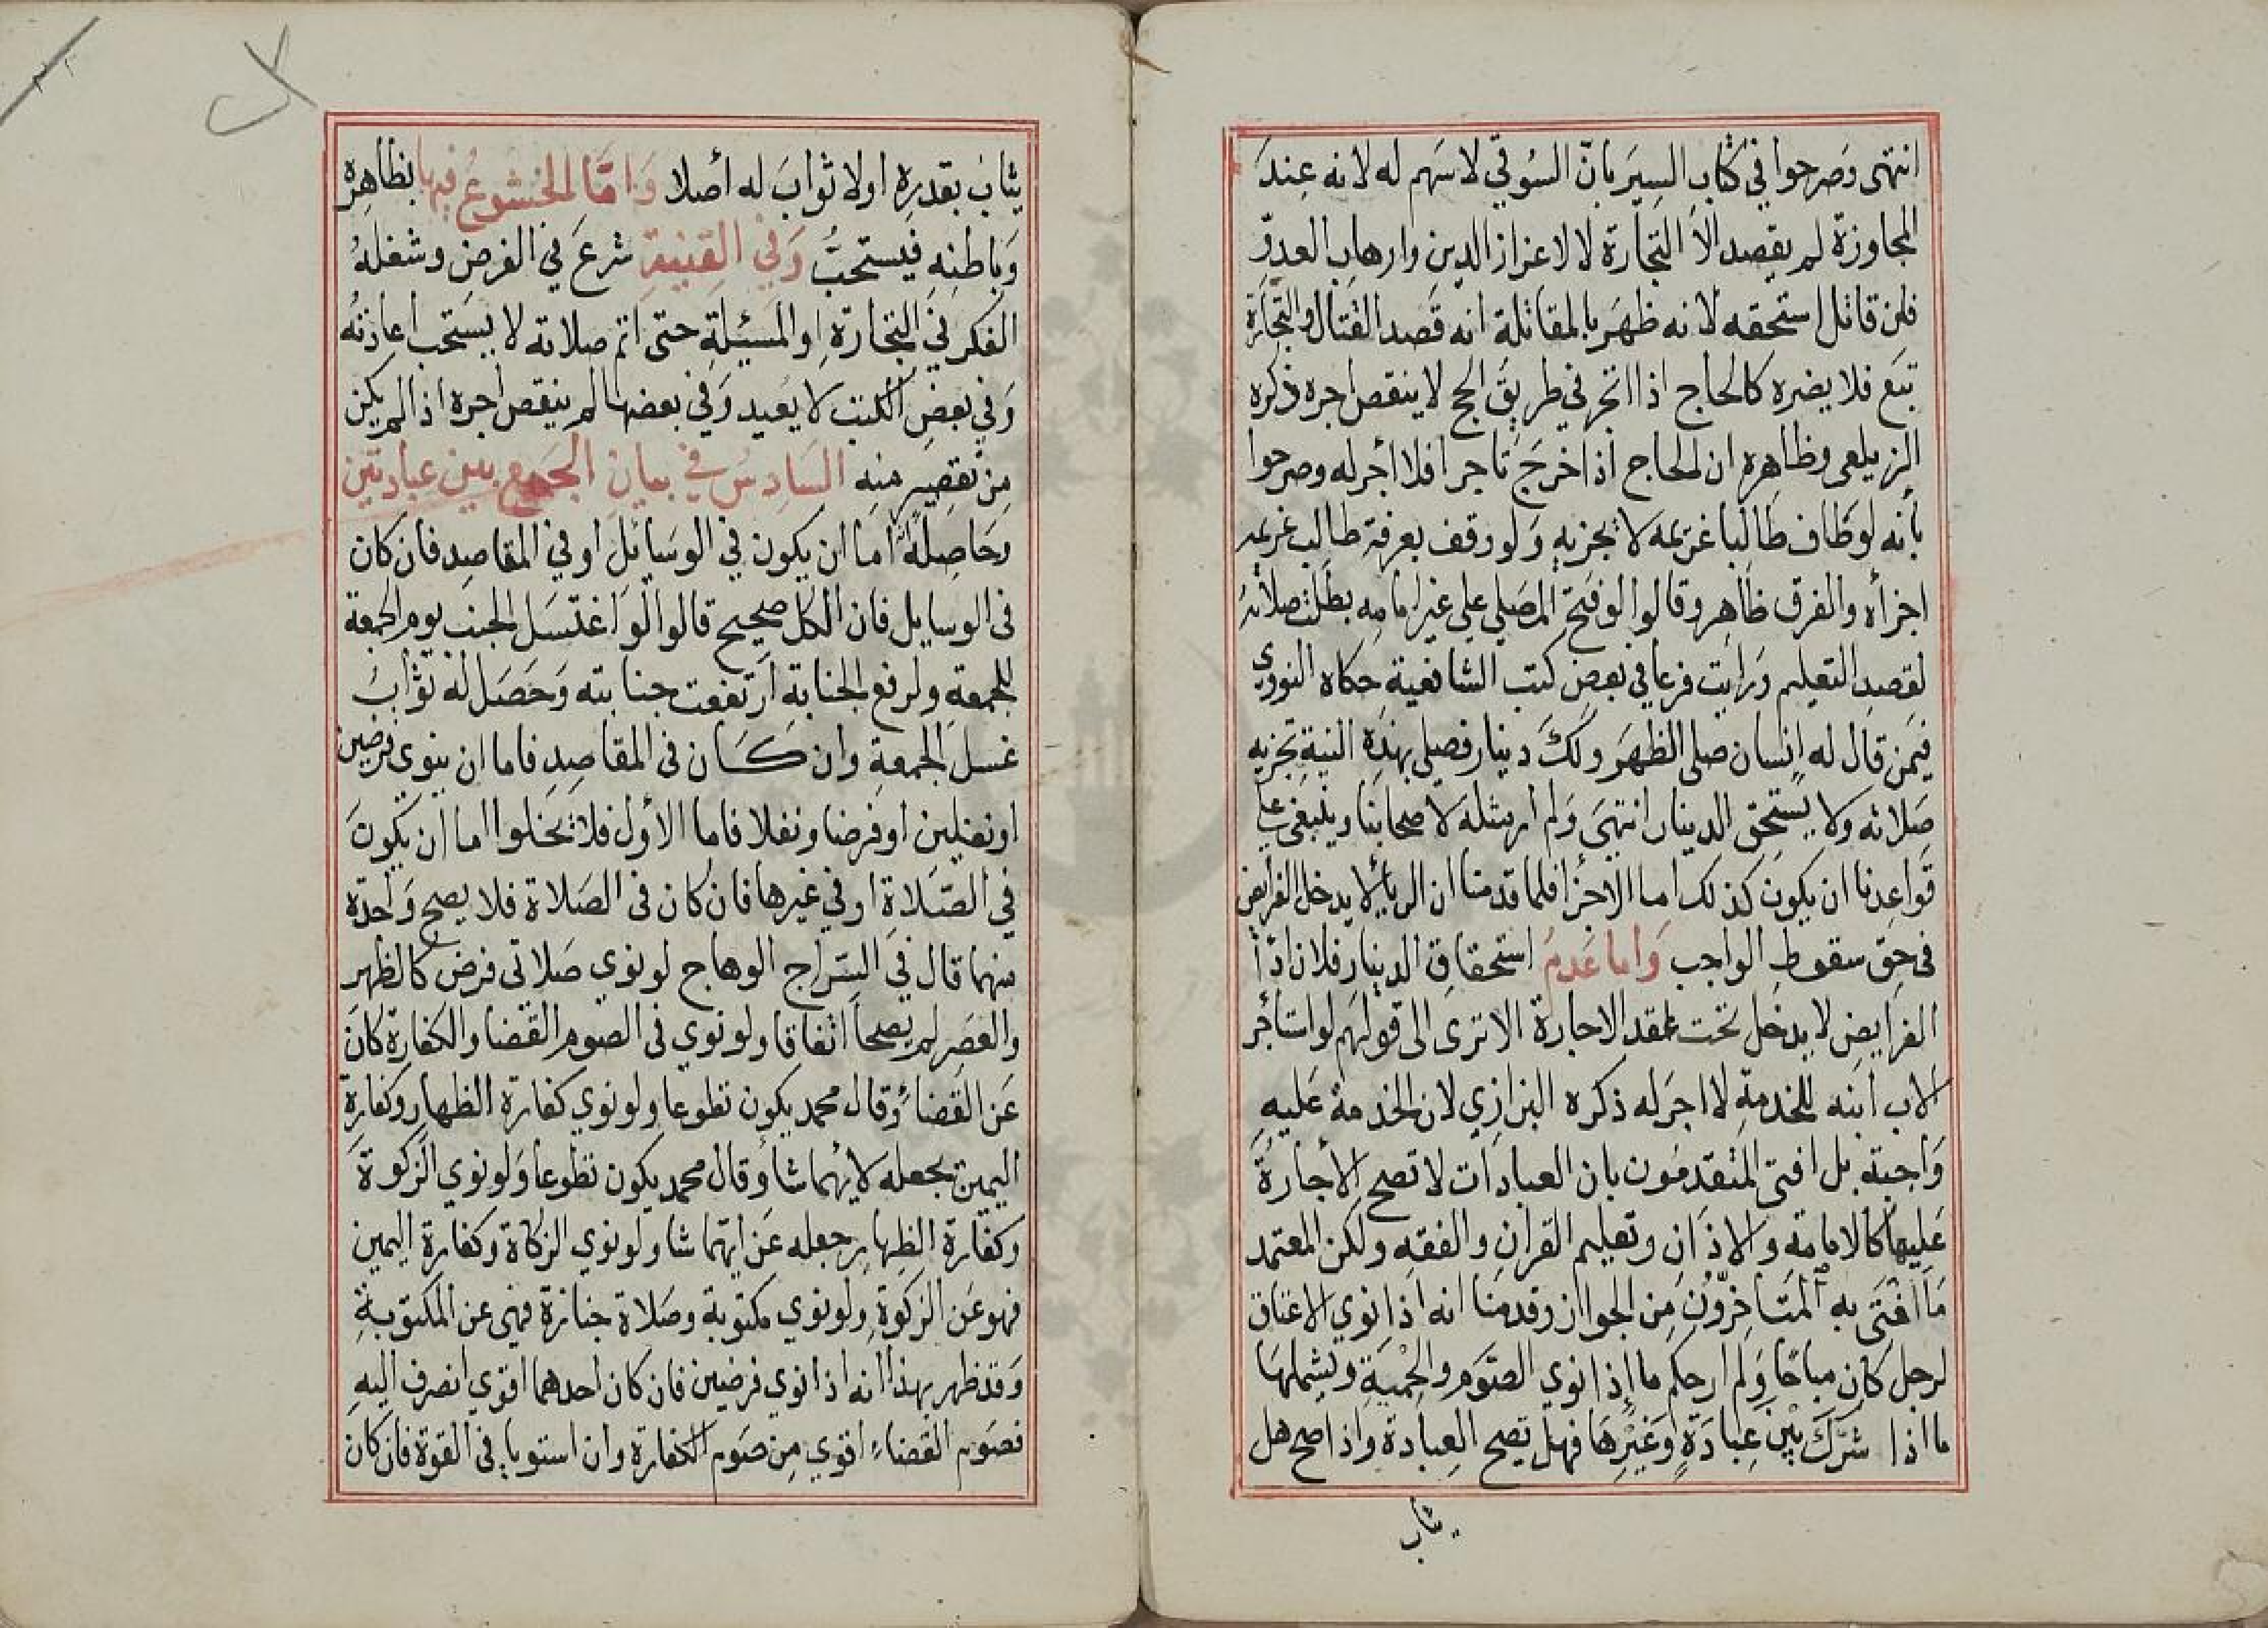 انتهى وصرحوا في كتاب السير بان السوقي لا سهم له لانه عند
المجاوزة لم يقصد الا التجارة لا لاعزاز الدين وارهاب العدو
فان قاتل استحقه لانه ظهر بالمقاتلة انه قصد القتال والتجارة
تبع فلا يضره كالحاج اذا اتجر في طريق الحج لا ينقص اجره ذكره
الزيلعى وظاهره ان الحاج اذا خرج تاجرا فلا أجر له وصرحوا
بأنه لو طاف طالبا غريمه لا يجزيه ولو وقف بعرفة طالب غريمه
اجزأه والفرق ظاهر وقالوا لو فتح المصلي على غير امامه بطلت صلاته
لقصد التعليم ورايت فرعا في بعض كتب الشافعية حكاه النووي
فيمن قال له انسان صلى الظهر ولك دينار فصلى بهذه النية تجزيه
صلاته ولا يستحق الدينار انتهى ولم ار مثله لاصحابنا وينبغى على
قواعدنا ان يكون كذلك اما الاجزا فلما قدمنا ان الريأ لا يدخل الفرايض
فى حق سقوط الواجب واما عدم استحقاق الدينار فلان ادأ
الفرايض لا يدخل تحت عقد الاجارة الا ترى الى قولهم لو استأجر
الاب ابنه للخدمة لا اجر له ذكره البزازي لان الخدمة عليه
واجبة بل افتى المتقدمون بان العبادات لا تصح الأجارة
عليها كالامامة والاذان وتعليم القران والفقه ولكن المعتمد
ما افتى به المتأخرون من الجواز وقدمنا انه اذا نوي الاعتاق
لرجل كان مباحا ولم ار حكم ما اذا نوي الصوم والحمية ويشملها
ما اذا شرك بين عبادة وغيرها فهل تصح العبادة واذا صح هل
يثاب
يثاب بقدره او لا ثواب له أصلا واما الخشوع فيها بظاهره
وباطنه فيستحب وفي القنية شرع في الفرض وشغله
الفكر في التجارة او المسئلة حتى اتم صلاته لا يستحب اعادته
وفي بعض الكتب لا يعيد وفي بعضها لم ينقص اجره اذا لم يكن
من تقصير منه السادس في بيان الجمع بين عبادتين
وحاصله اما ان يكون في الوسائل او في المقاصد فان كان
فى الوسايل فان الكل صحيح قالوا لو اغتسل الجنب يوم الجمعة
للجمعة ولرفع الجنابة ارتفعت جنابته وحصل له ثواب
غسل الجمعة وان كان فى المقاصد فاما ان ينوى فرضين
او نفلين او فرضا ونفلا فاما الأول فلا يخلوا اما ان يكون
في الصلاة او في غيرها فان كان فى الصلاة فلا يصح واحدة
منهما قال في السراج الوهاج لو نوي صلاتى فرض كالظهر
والعصر لم يصحا اتفاقا ولو نوي فى الصوم القضا والكفارة كان
عن القضاء وقال محمد يكون تطوعا ولو نوي كفارة الظهار وكفارة
اليمين يجعله لايهما شاء وقال محمد يكون تطوعا ولو نوي الزكوة
وكفارة الظهار جعله عن ايهما شا ولو نوي الزكاة وكفارة اليمين
فهو عن الزكوة ولو نوي مكتوبة وصلاة جنازة فهى عن المكتوبة
وقد ظهر بهذا انه اذا نوي فرضين فان كان احدهما اقوي انصرف اليه
فصوم القضاء اقوي من صوم الكفارة وان استويا فى القوة فان كان